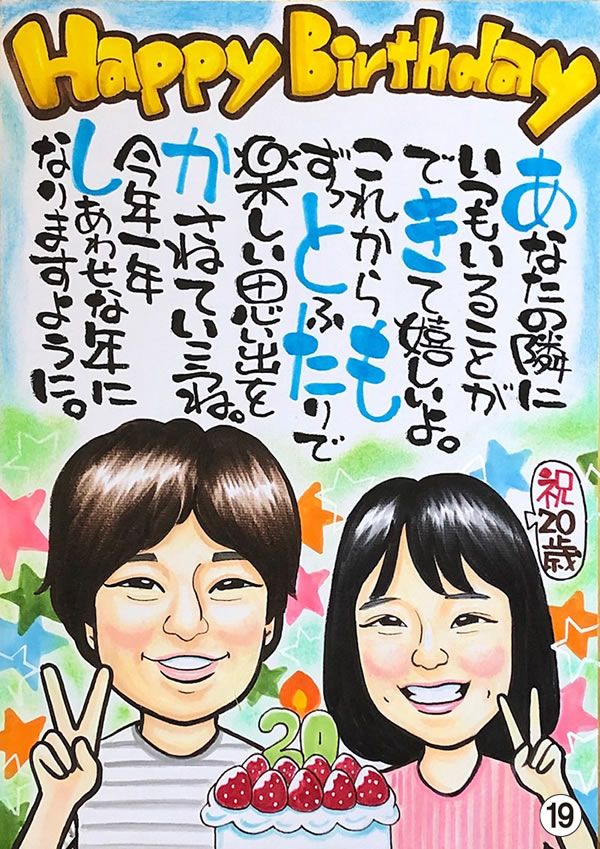 Happy Birthday
あなたの隣に
いつもいることが
できて嬉しいよ。
これからも
ずっとふたりで
楽しい思い出を
かさねていこうね。
今年一年
しあわせな年に
なりますように。
祝20歳
20
19